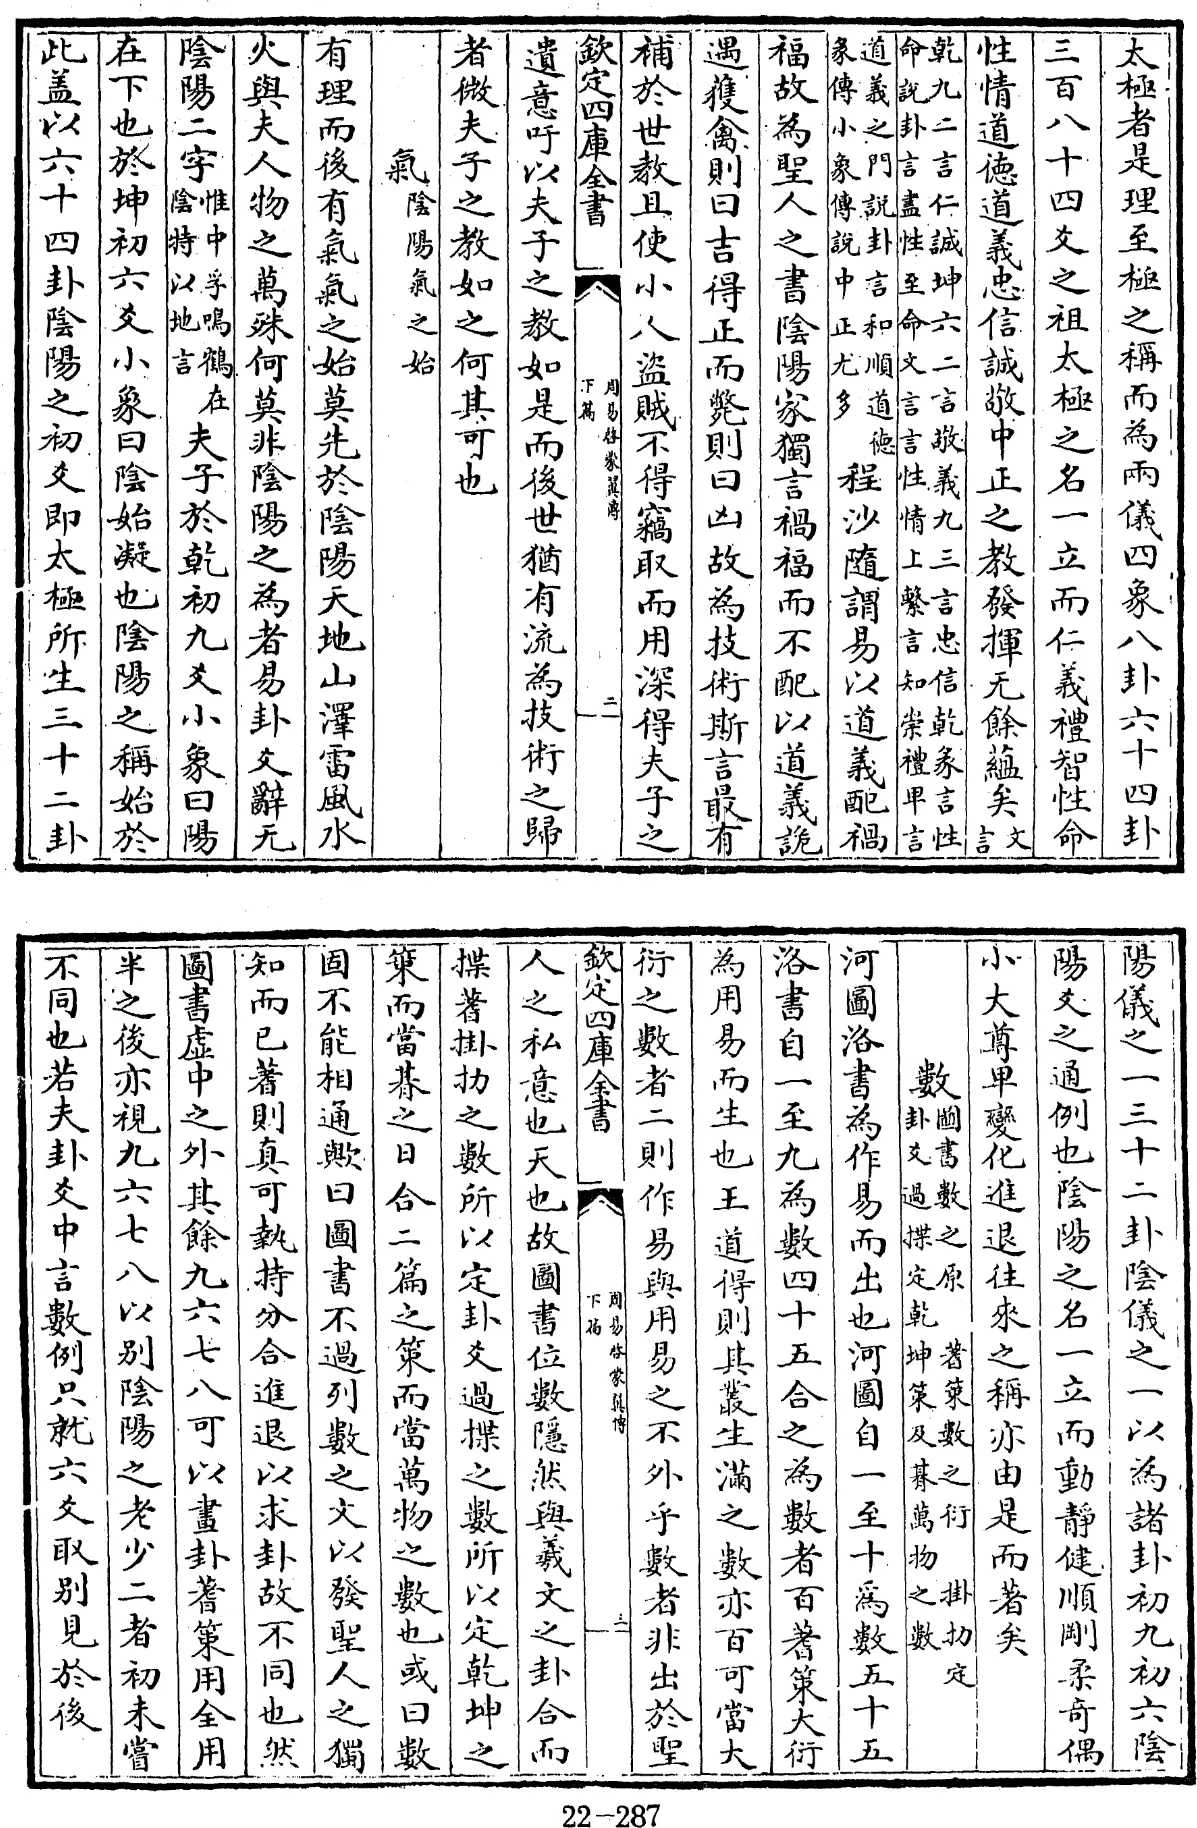 太極者是理至極之稱而為兩儀四象八卦六十四卦
三百八十四爻之祖太極之名一立而仁義禮智性命
性情道德道義忠信誠敬中正之教發揮无餘蘊矣文言
乾九二言仁誠坤六二言敬義九三言忠信乾彖言性
命說卦言盡性至命文言言性情上繫言知崇禮卑言
道義之門說卦言和順道德
彖傳小象傳說中正尤多
程沙隨謂易以道義配禍
福故為聖人之書陰陽家獨言禍福而不配以道義詭
遇獲禽則曰吉得正而斃則曰凶故為技術斯言最有
補於世教且使小人盜賊不得竊取而用深得夫子之
欽定四庫全書
周易啓蒙翼傳
下篇
二
遺意吁以夫子之教如是而後世猶有流為技術之歸
者微夫子之教如之何其可也
氣陰陽氣之始
有理而後有氣氣之始莫先於陰陽天地山澤雷風水
火與夫人物之萬殊何莫非陰陽之為者易卦爻辭无
陰陽二字惟中孚鳴鶴在
陰特以地言
夫子於乾初九爻小象曰陽
在下也於坤初六爻小象曰陰始凝也陰陽之稱始於
此蓋以六十四卦陰陽之初爻即太極所生三十二卦
陽儀之一三十二卦陰儀之一以為諸卦初九初六陰
陽爻之通例也陰陽之名一立而動靜健順剛柔奇偶
小大尊卑變化進退往來之稱亦由是而著矣
數圖書數之原 蓍策數之衍 掛扐定
卦爻過揲定乾坤策及朞萬物之數
河圖洛書為作易而出也河圖自一至十為數五十五
洛書自一至九為數四十五合之為數者百蓍策大衍
為用易而生也王道得則其叢生滿之數亦百可當大
衍之數者二則作易與用易之不外乎數者非出於聖
欽定四庫全書
周易啓蒙翼傳
下篇
三
人之私意也天也故圖書位數隱然與羲文之卦合而
揲蓍掛扐之數所以定卦爻過揲之數所以定乾坤之
策而當朞之日合二篇之策而當萬物之數也或曰數
固不能相通歟曰圖書不過列數之文以發聖人之獨
知而已蓍則真可執持分合進退以求卦故不同也然
圖書虛中之外其餘九六七八可以畫卦蓍策用全用
半之後亦視九六七八以別陰陽之老少二者初未嘗
不同也若夫卦爻中言數例只就六爻取別見於後
22-287